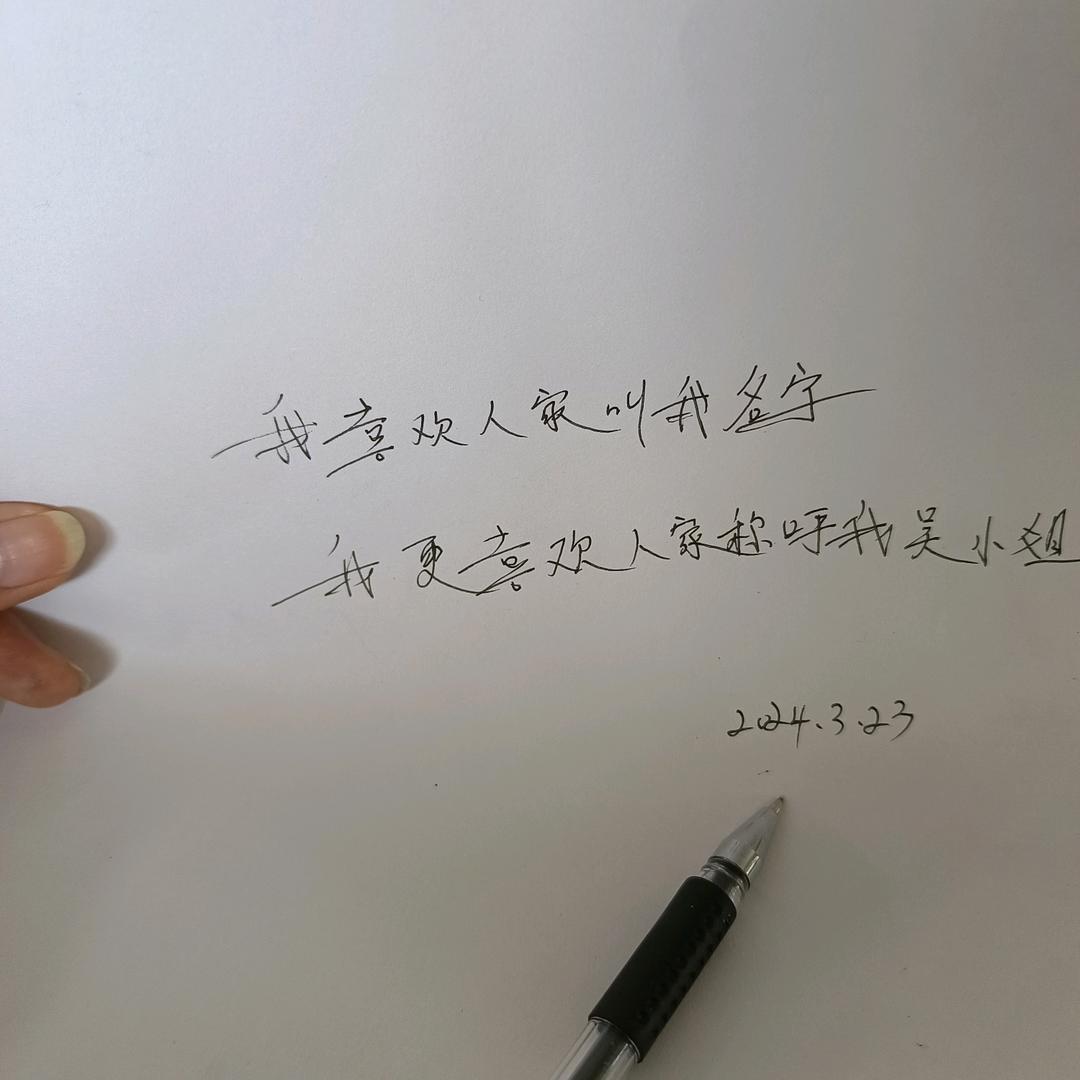 我喜欢人家叫我名字
我更喜欢人家称呼我吴小姐
2024.3.23